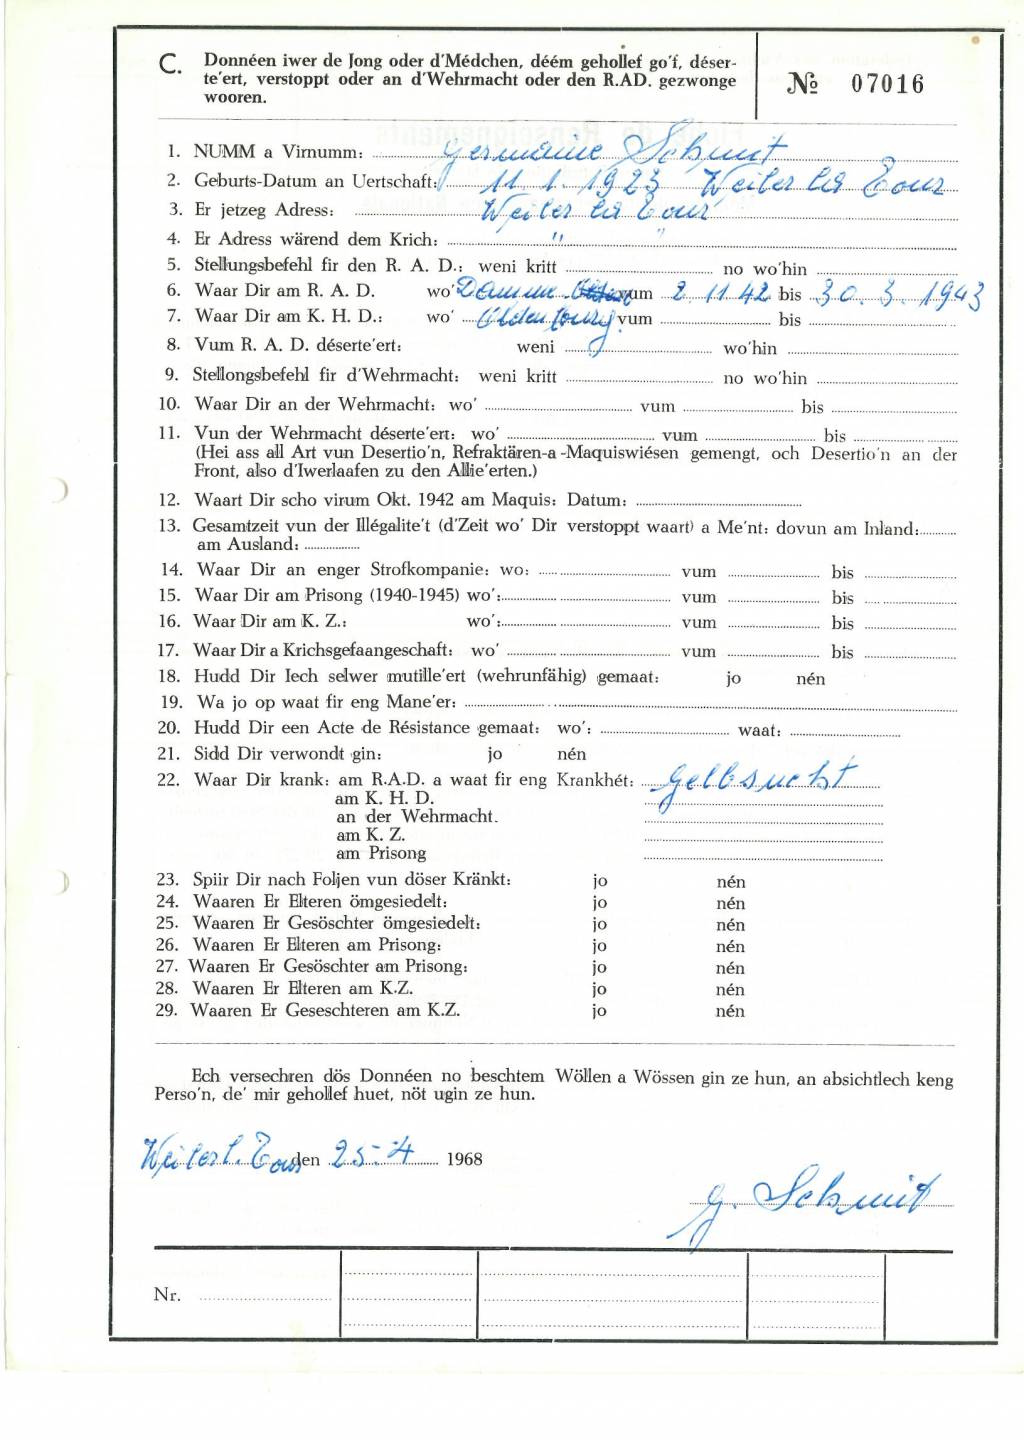 C. Donnéen iwer de Jong oder d'Médchen, déém gehollef go'f, déser-
te'ert, verstoppt oder an d'Wehrmacht oder den R.AD. gezwonge
wooren.
№ 07016
1. NUMM a Virnumm: Germaine Schmit
2. Geburts-Datum an Uertschaft: 11. 1. 1923 Weiler la Tour
3. Er jetzeg Adress: Weiler la Tour
4. Er Adress wärend dem Krich: " "
5. Stellungsbefehl fir den R. A. D.: weni kritt no wo'hin
6. Waar Dir am R. A. D. wo' Damme vum 2 11 42 bis 30. 3. 1943
7. Waar Dir am K. H. D.: wo' Oldenburg vum bis
8. Vum R. A. D. déserte'ert: weni wo'hin
9. Stellongsbefehl fir d'Wehrmacht: weni kritt no wo'hin
10. Waar Dir an der Wehrmacht: wo' vum bis
11. Vun der Wehrmacht déserte'ert: wo' vum bis
(Hei ass all Art vun Desertio'n, Refraktären-a-Maquiswiésen gemengt, och Desertio'n an der
Front, also d'Iwerlaafen zu den Allie'erten.)
12. Waart Dir scho virum Okt. 1942 am Maquis: Datum:
13. Gesamtzeit vun der Illégalite't (d'Zeit wo' Dir verstoppt waart) a Me'nt: dovun am Inland:
am Ausland:
14. Waar Dir an enger Strofkompanie: wo: vum bis
15. Waar Dir am Prisong (1940-1945) wo': vum bis
16. Waar Dir am K. Z.: wo': vum bis
17. Waar Dir a Krichsgefaangeschaft: wo' vum bis
18. Hudd Dir Iech selwer mutille'ert (wehrunfähig) gemaat: jo nén
19. Wa jo op waat fir eng Mane'er:
20. Hudd Dir een Acte de Résistance gemaat: wo': waat:
21. Sidd Dir verwondt gin: jo nén
22. Waar Dir krank: am R.A.D. a waat fir eng Krankhét: Gelbsucht
am K. H. D.
an der Wehrmacht.
am K. Z.
am Prisong
23. Spiir Dir nach Foljen vun döser Kränkt: jo nén
24. Waaren Er Elteren ömgesiedelt: jo nén
25. Waaren Er Gesöschter ömgesiedelt: jo nén
26. Waaren Er Elteren am Prisong: jo nén
27. Waaren Er Gesöschter am Prisong: jo nén
28. Waaren Er Elteren am K.Z. jo nén
29. Waaren Er Geseschteren am K.Z. jo nén
Ech versechren dös Donnéen no beschtem Wöllen a Wössen gin ze hun, an absichtlech keng
Perso'n, de' mir gehollef huet, nöt ugin ze hun.
Weiler l. Tour den 25-4 1968
G. Schmit
Nr.